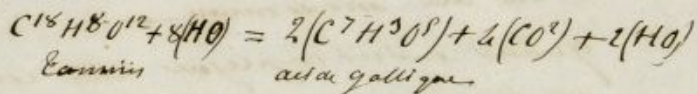 C¹⁸ H⁸ O¹² + 8(HO) = 2(C⁷ H³ O⁵) + 4(CO²) + 2(HO)
Tannin acide gallique